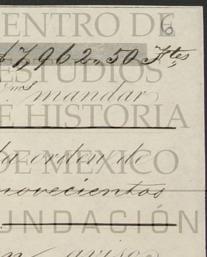 CENTRO DE
8
$7,962.50 Ftes
ESTUDIOS
mandar
E HISTORIA
la orden de
DE MEXICO
novecientos
FUNDACIÓN
aviso